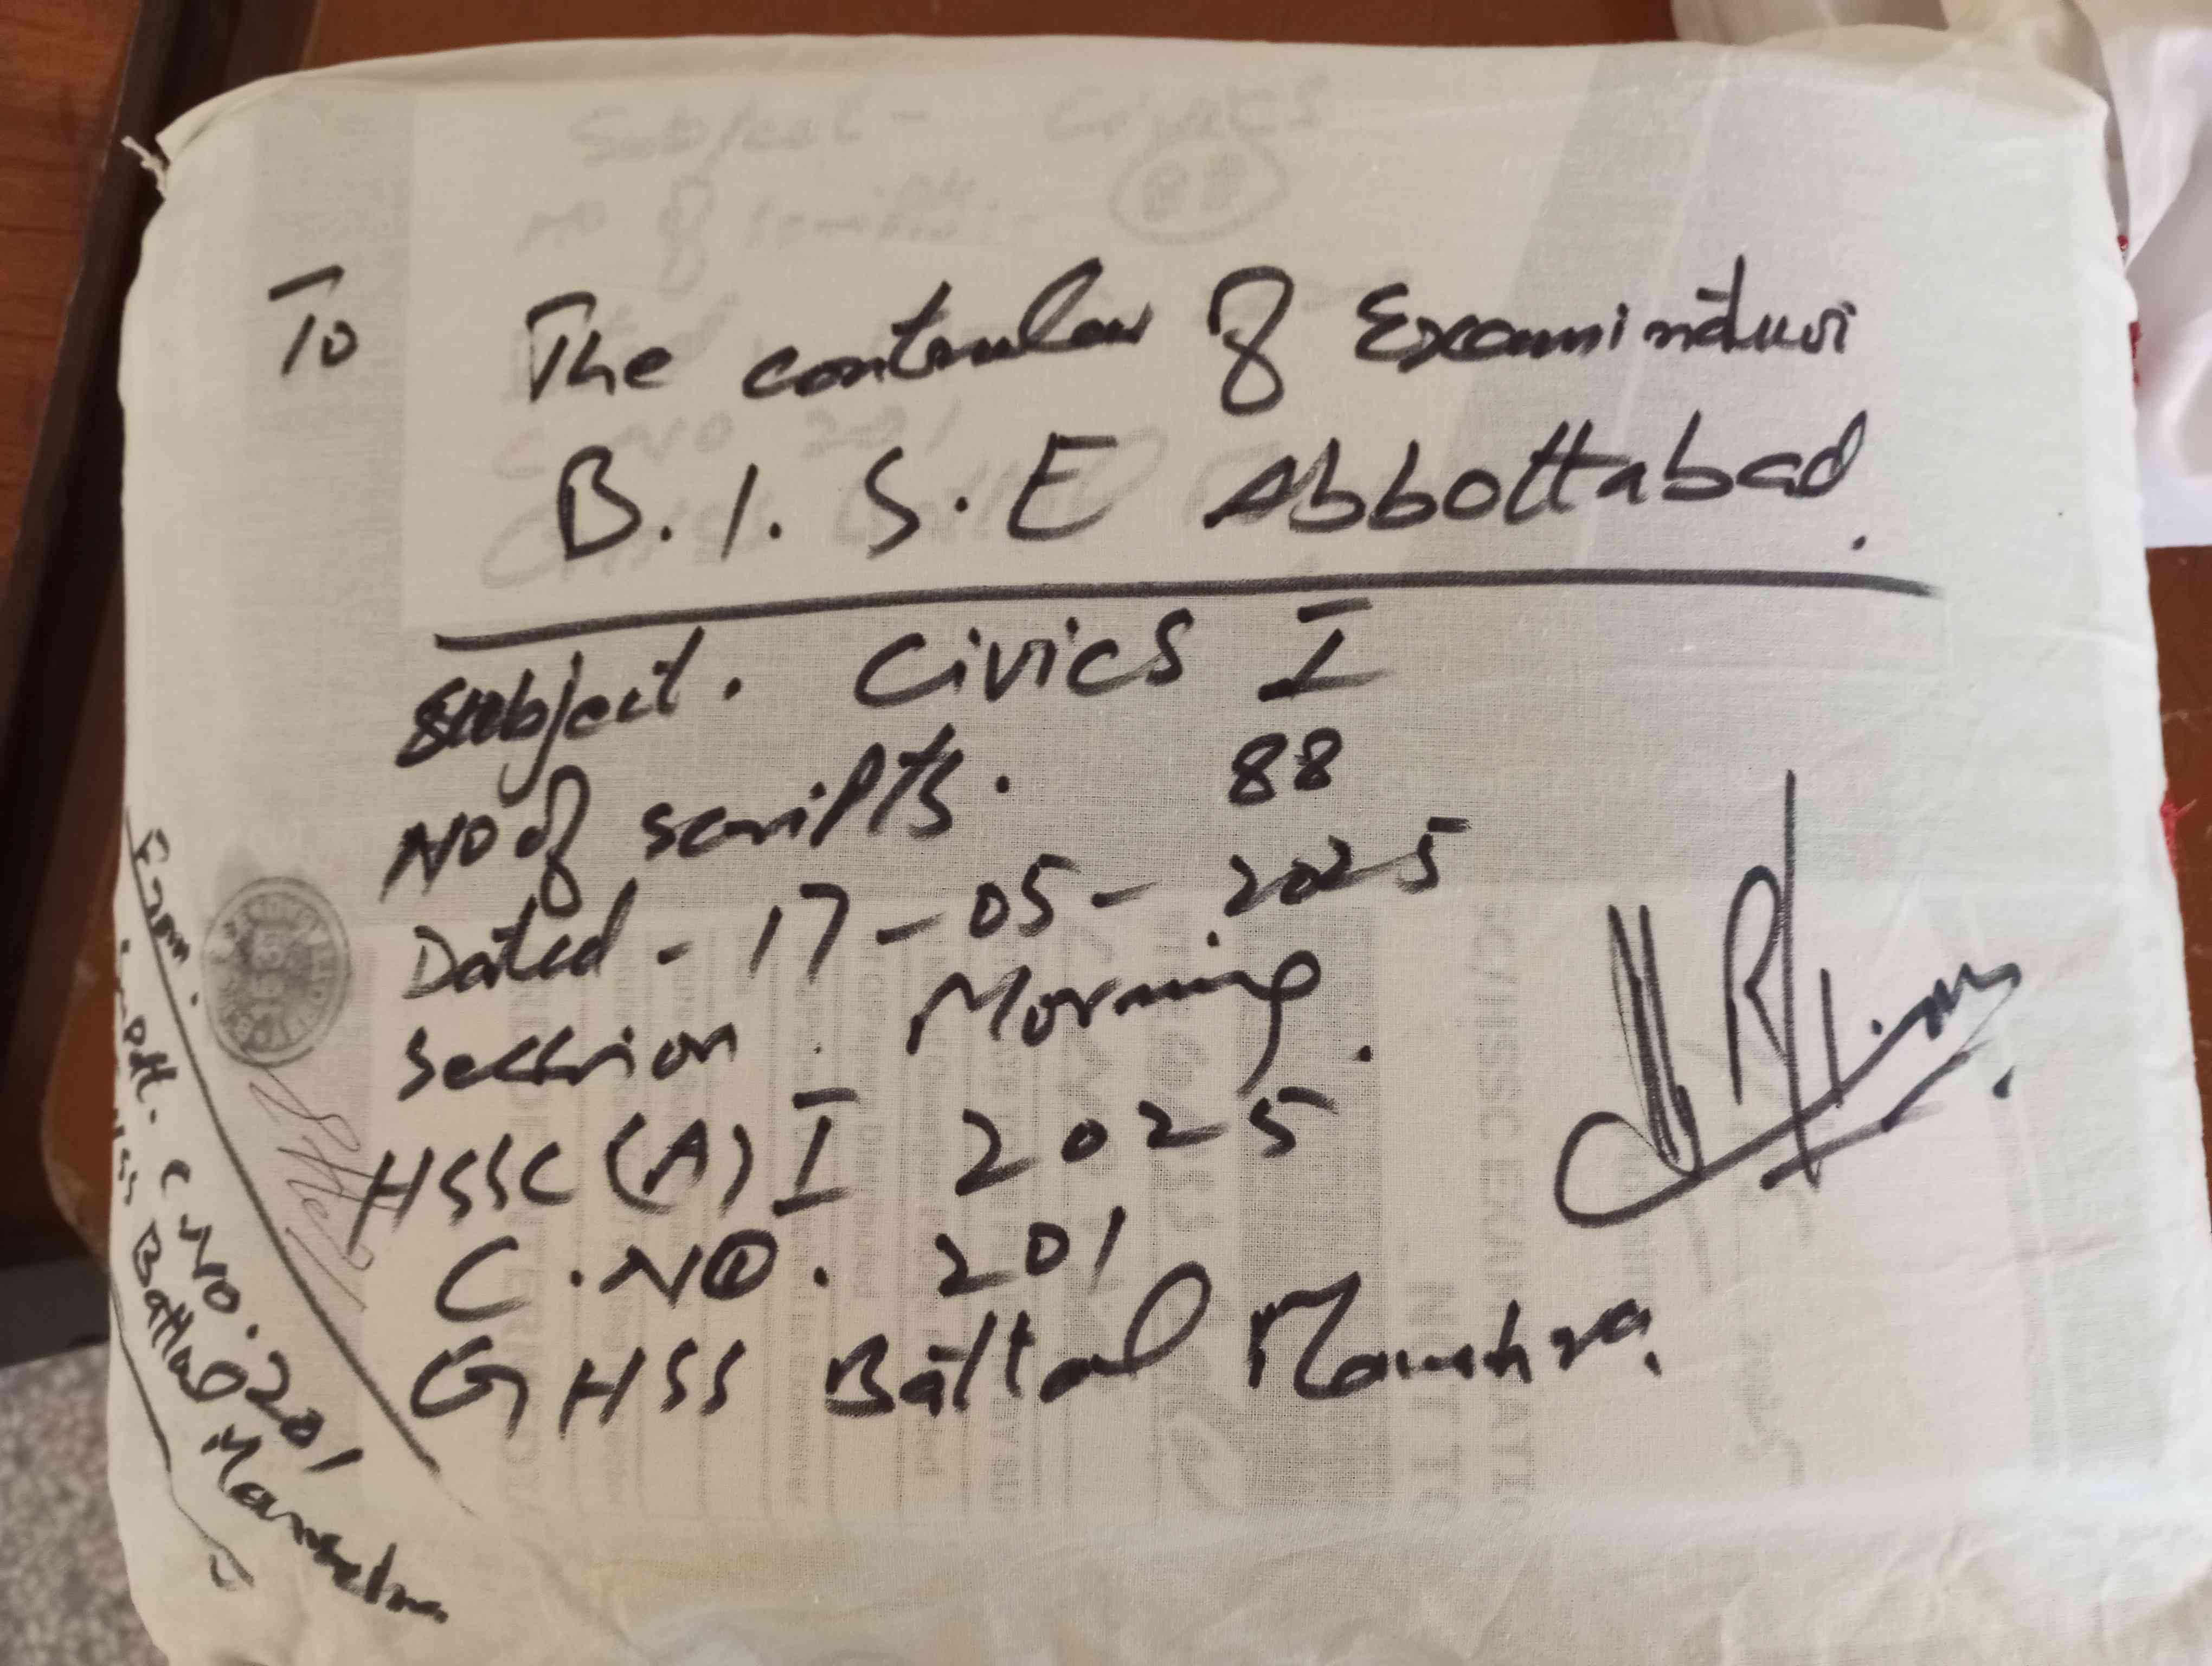 Subject - Civics
No of scripts :- 88
To
The controlar of Examination
B.I.S.E Abbottabad.
Subject. Civics I
No of scripts. 88
Dated - 17-05-2025
Session. Morning.
HSSC (A) I 2025
C.NO. 201
GHSS Battal Mansehra.
From.
Supdt. C NO. 201
GHSS Battal Mansehra